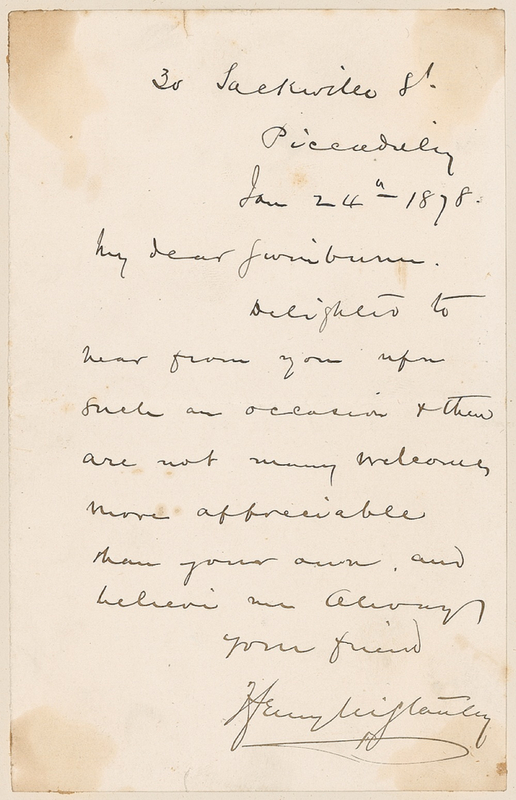 30 Sackville St.
Piccadilly
Jan 24th 1878.
My dear Swinburne.
Delighted to
hear from you upon
such an occasion & there
are not many welcomes
more appreciable
than your own, and
believe me Always
your friend
Henry M Stanley